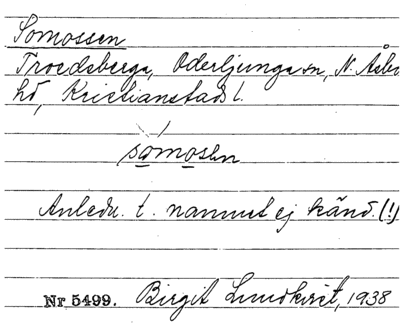 Somossen
Troedsberga, Oderljunga sn, N. Åsbo
hd, Kristianstads l.
sómosən
Anledn. t. namnet ej känd. (!)
Nr 5499. Birgit Lundkvist, 1938